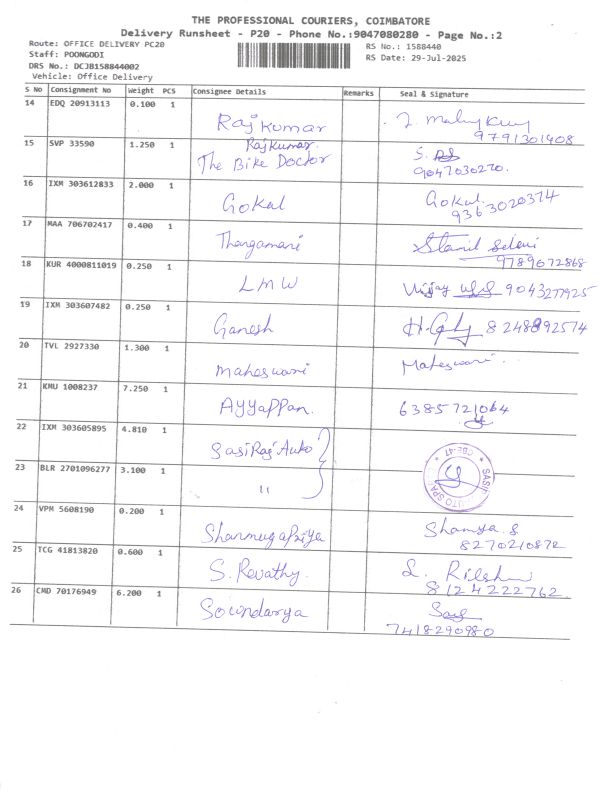 THE PROFESSIONAL COURIERS, COIMBATORE
Delivery Runsheet - P20 - Phone No.:9047080280 - Page No.:2
Route: OFFICE DELIVERY PC20
RS No.: 1588440
Staff: POONGODI
RS Date: 29-Jul-2025
DRS No.: DCJB158844002
Vehicle: Office Delivery
S No Consignment No Weight PCS Consignee Details Remarks Seal & Signature
14 EDQ 20913113 0.100 1 Rajkumar
9791301408
15 SVP 33590 1.250 1 Rajkumar. S.
The Bike Doctor 9047030270.
16 IXM 303612833 2.000 1 Gokul Gokul.
9363020374
17 MAA 706702417 0.400 1 Thangamani
9789072868
18 KUR 4000811019 0.250 1 LMW Vijay 9043277925
19 IXM 303607482 0.250 1 Ganesh 8248892574
20 TVL 2927330 1.300 1 Maheswari Maheswari.
21 KMU 1008237 7.250 1 Ayyappan. 6385721064
22 IXM 303605895 4.810 1 Sasi Raj Auto
23 BLR 2701096277 3.100 1 "
CBE-47
24 VPM 5608190 0.200 1 Shanmugapriya
8270210872
25 TCG 41813820 0.600 1 S. Revathy.
8124222762
26 CMD 70176949 6.200 1 Soundarya
7418290980